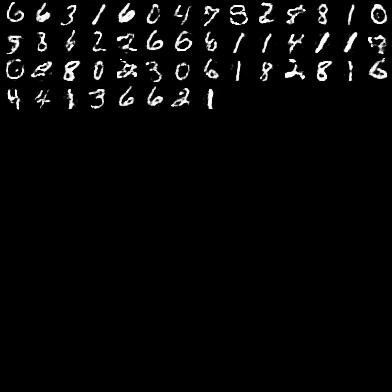 6 6 3 1 6 0 4 7 8 2 8 8 1 0
5 8 6 2 2 6 6 6 1 1 4 1 1 3
0 2 8 0 2 3 0 6 1 8 2 8 1 6
4 4 1 3 6 6 2 1